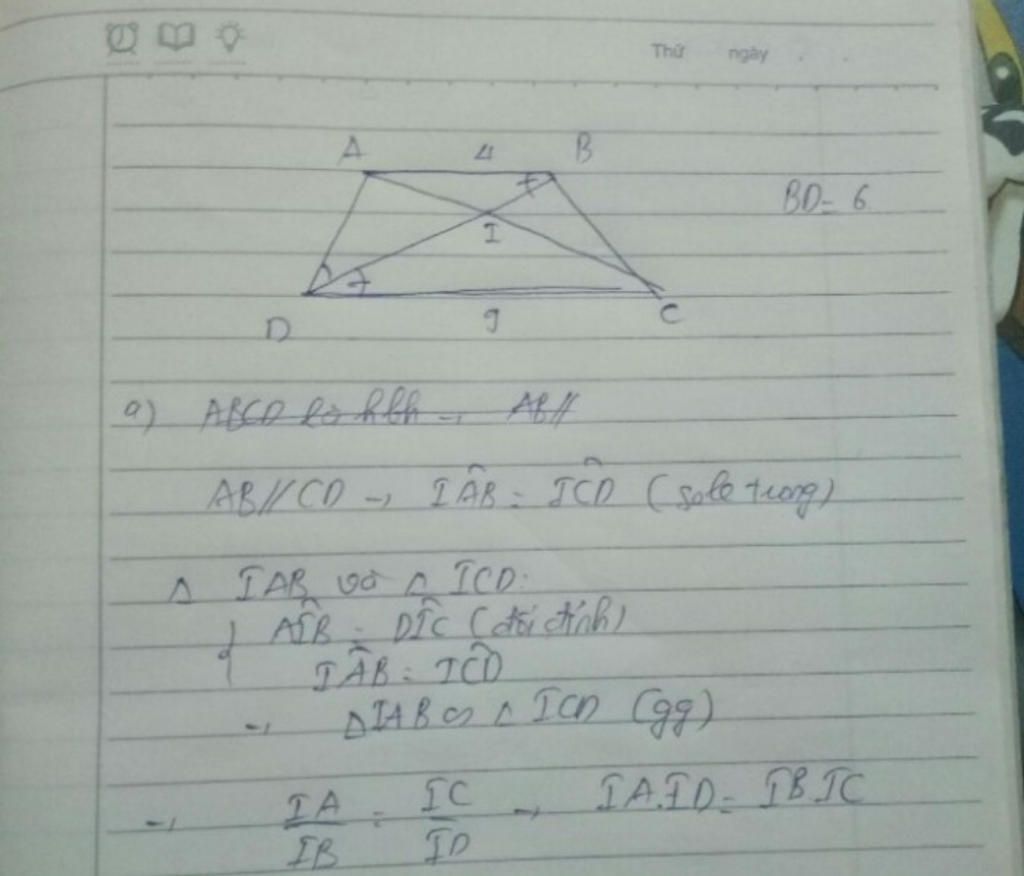 Thứ ngày . .
A 4 B
BD = 6
I
D 9 C
a) ABCD là hbh → AB//
AB//CD → IÂB = IĈD (sole trong)
Δ IAB và Δ ICD:
{ AÎB = DÎC (đối đỉnh)
IÂB = IĈD
→ ΔIAB ∽ Δ ICD (gg)
→ IA/IB = IC/ID → IA.ID = IB.IC